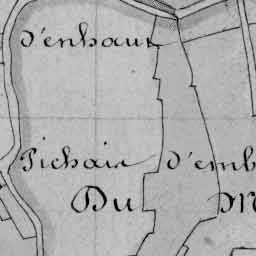 d'enhaut
Pichair d'emb
Du M